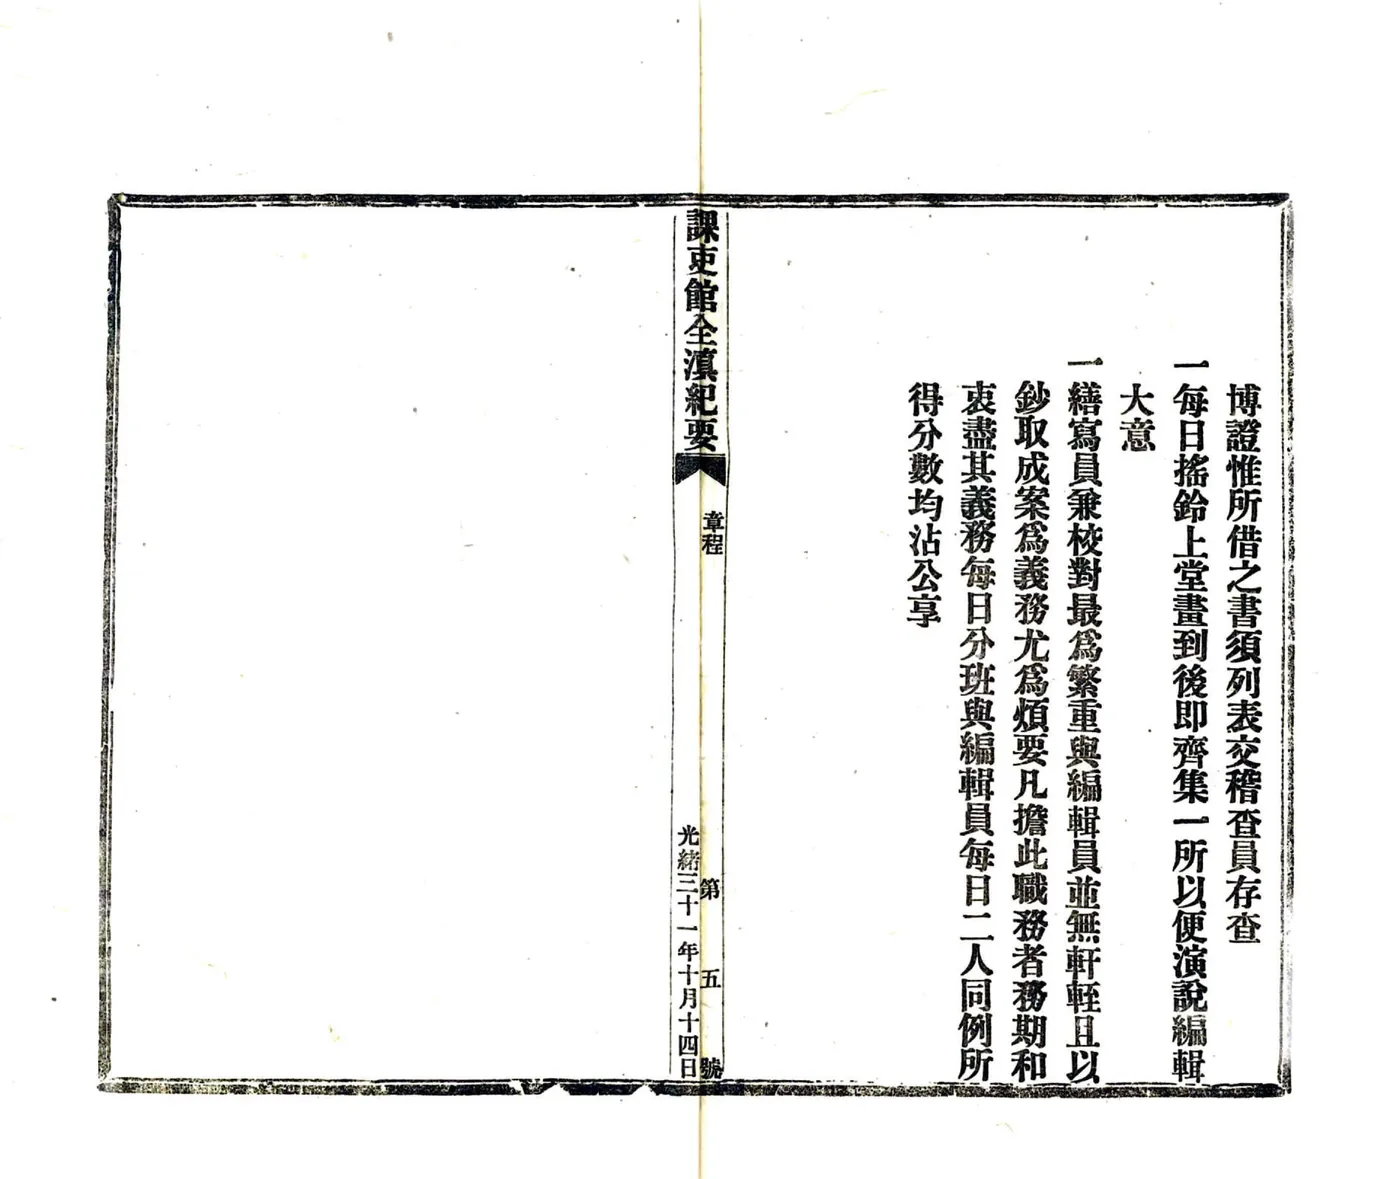 博證惟所借之書須列表交稽查員存查
一每日搖鈴上堂畫到後即齊集一所以便演說編輯
大意
一繕寫員兼校對最爲繁重與編輯員並無軒輊且以
鈔取成案爲義務尤爲煩要凡擔此職務者務期和
衷盡其義務每日分班與編輯員每日二人同例所
得分數均沾公享
課吏館全滇紀要
章程
第五號
光緒三十一年十月十四日